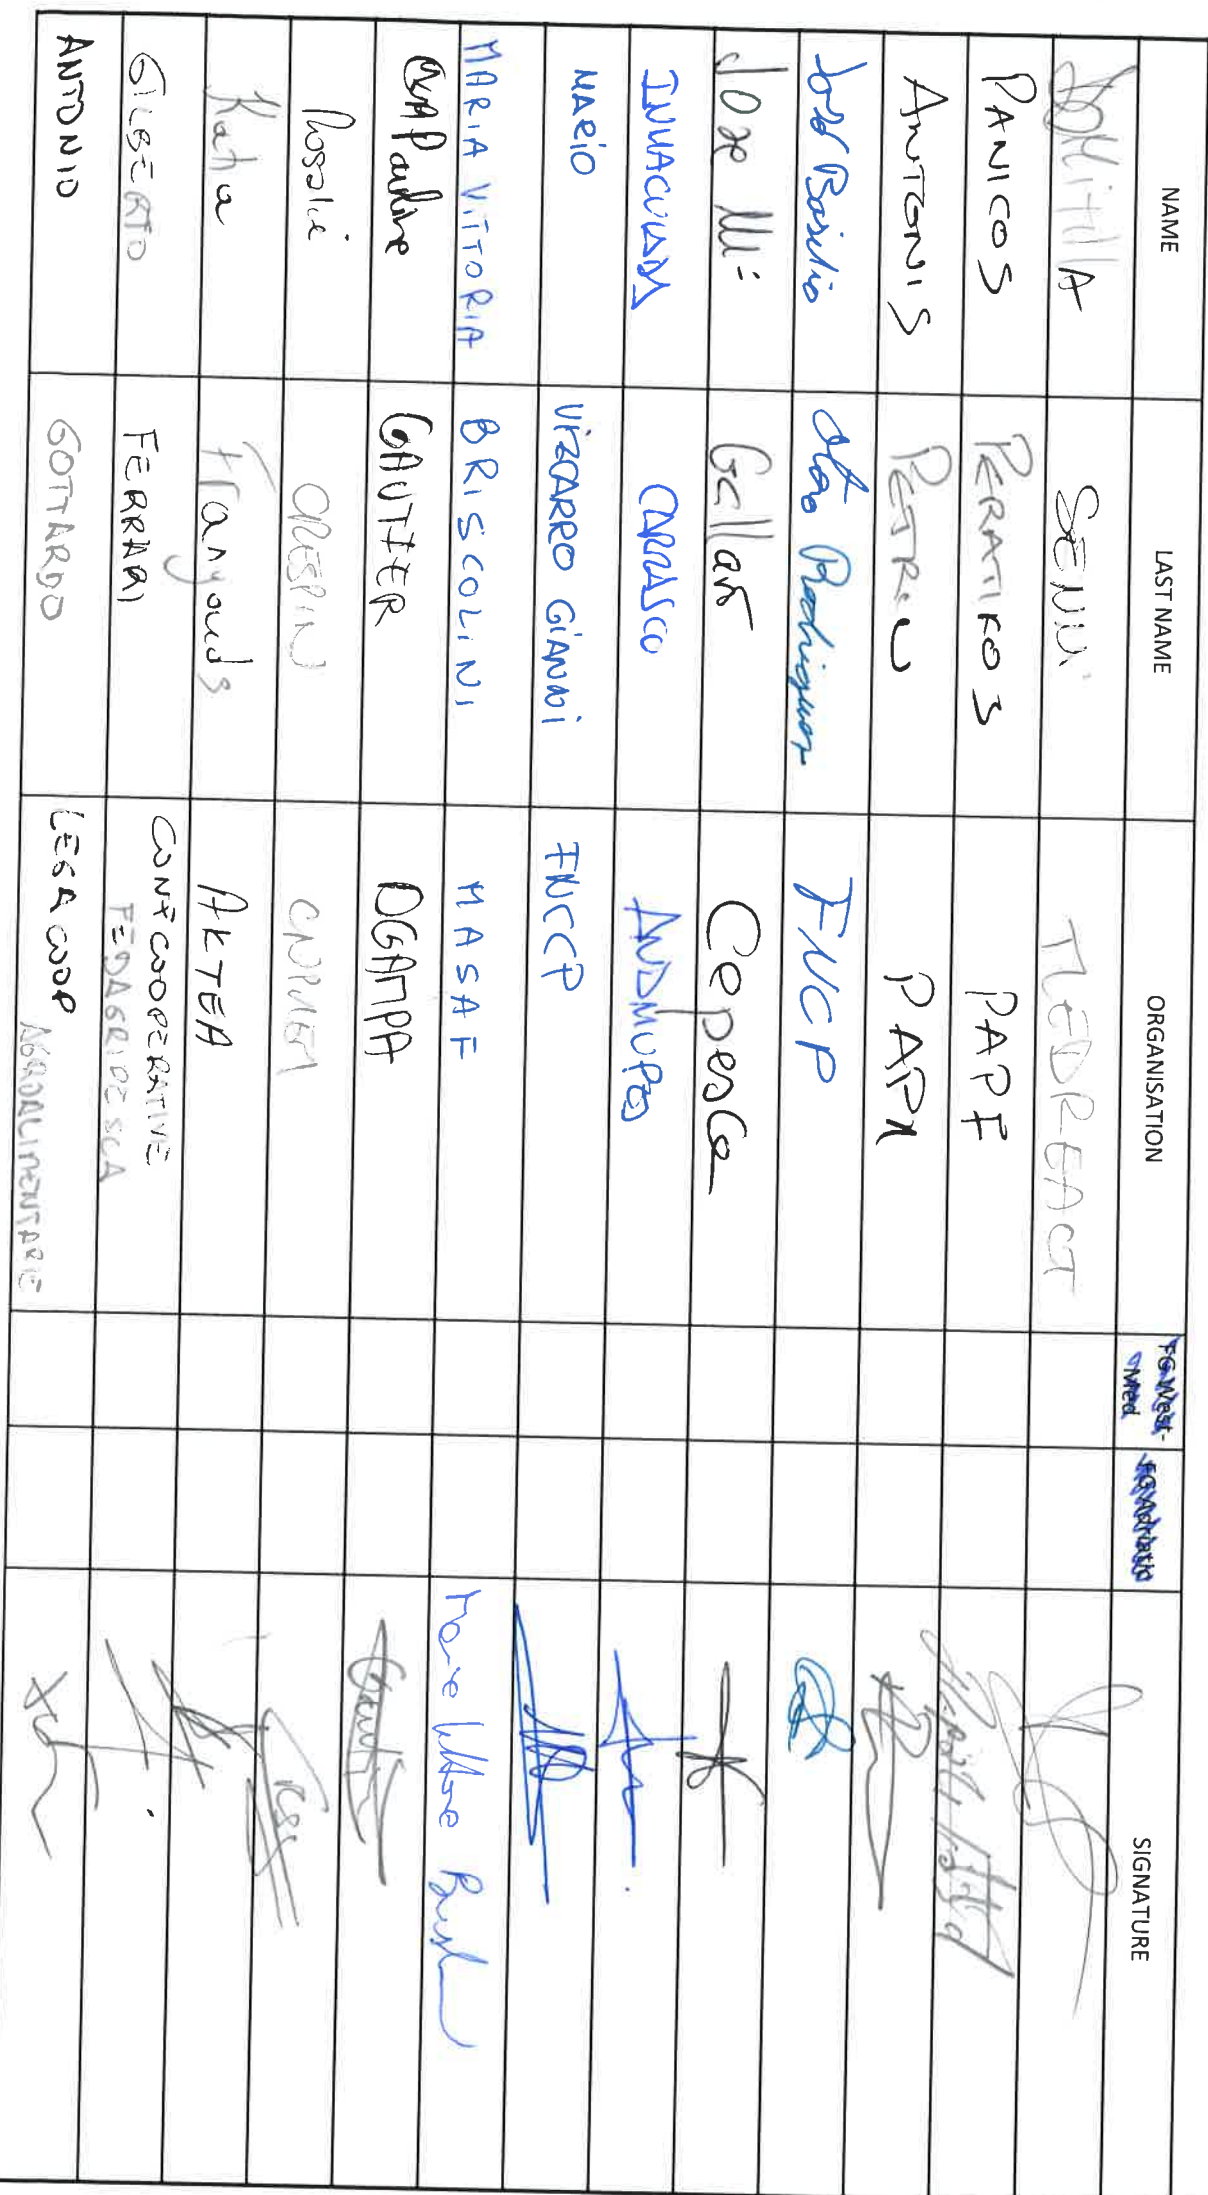 NAME LAST NAME ORGANISATION FG West-Med FG Adriatic SIGNATURE
DOMITILLA SENNI MEDREACT
PANICOS PERATIKOS PAPF
ANTONIS PETROU PAPX
José Basilio Otero Rodriguez FNCP
Jose Mª Gallart Cepesca
INMACULADA CARRASCO ANDMUPES
MARIO VIZCARRO GIANNI FNCCP
MARIA VITTORIA BRISCOLINI MASAF
Pauline GAUTIER DGAMPA
Rosalie CRESPIN CNPMEM
Katia Frangoudes AKTEA
GILBERTO FERRARI CONFCOOPERATIVE
FEDAGRIPESCA
ANTONIO GOTTARDO LEGACOOP
AGROALIMENTARE